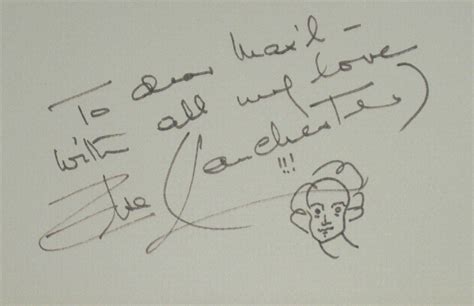 To dear Max'l -
with all my love
Elsa Lanchester
!!!